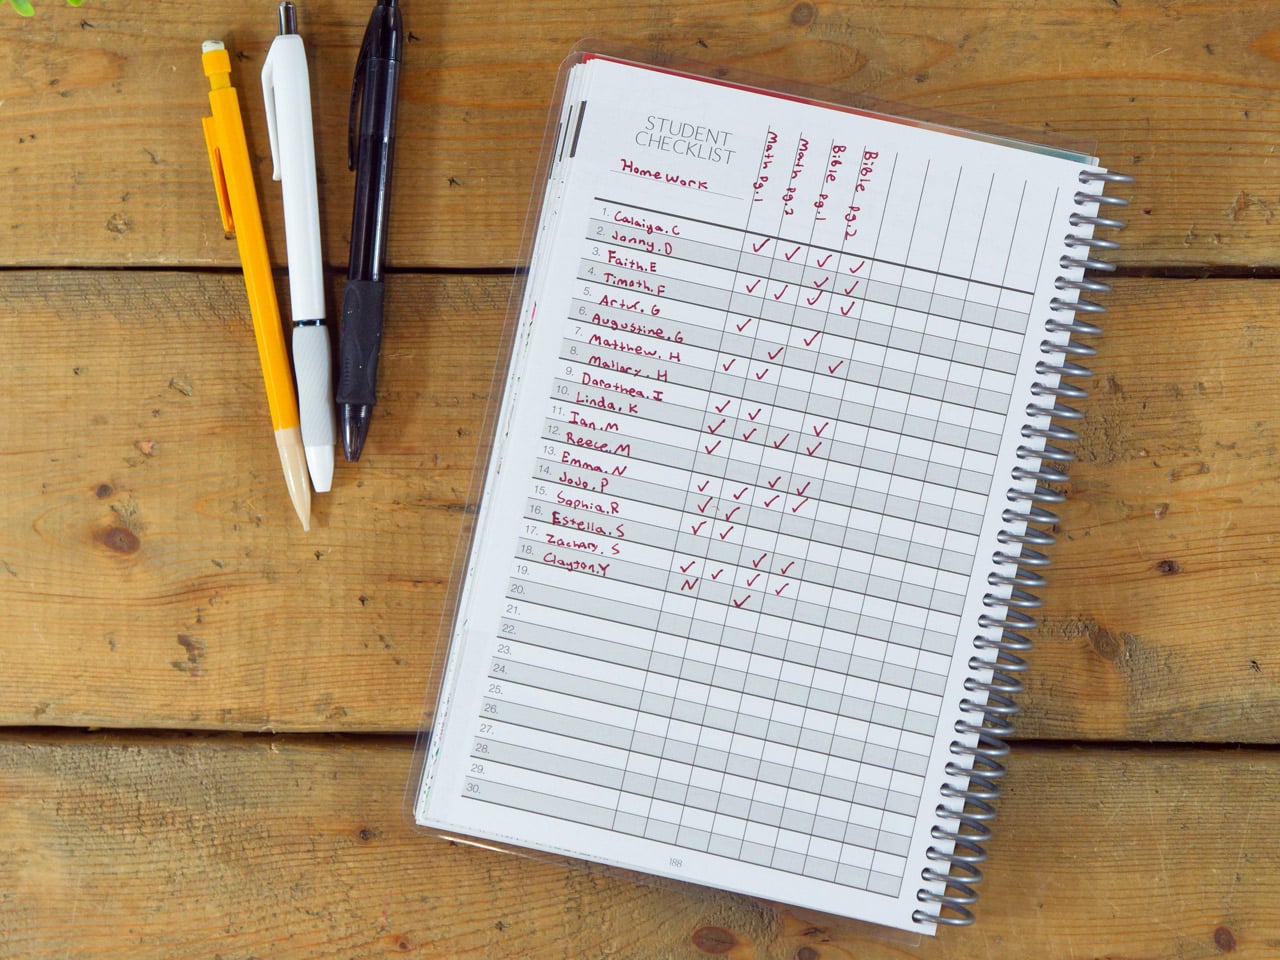 STUDENT
CHECKLIST
Home Work
Math pg.1
Math pg.2
Bible pg.1
Bible pg.2
1. Calaiya.C ✓ ✓ ✓ ✓
2. Jonny.D ✓ ✓
3. Faith.E ✓ ✓ ✓ ✓
4. Timoth.F
5. Artur.G ✓ ✓
6. Augustine.G ✓ ✓
7. Matthew.H ✓ ✓
8. Mallory.H
9. Dorothea.I ✓ ✓ ✓
10. Linda.K ✓ ✓ ✓ ✓
11. Ian.M ✓
12. Reece.M ✓ ✓
13. Emma.N ✓ ✓ ✓ ✓
14. JoJo.P ✓ ✓
15. Sophia.R ✓ ✓
16. Estella.S ✓ ✓
17. Zachary.S ✓ ✓ ✓ ✓
18. Clayton.Y N ✓
19.
20.
21.
22.
23.
24.
25.
26.
27.
28.
29.
30.
188